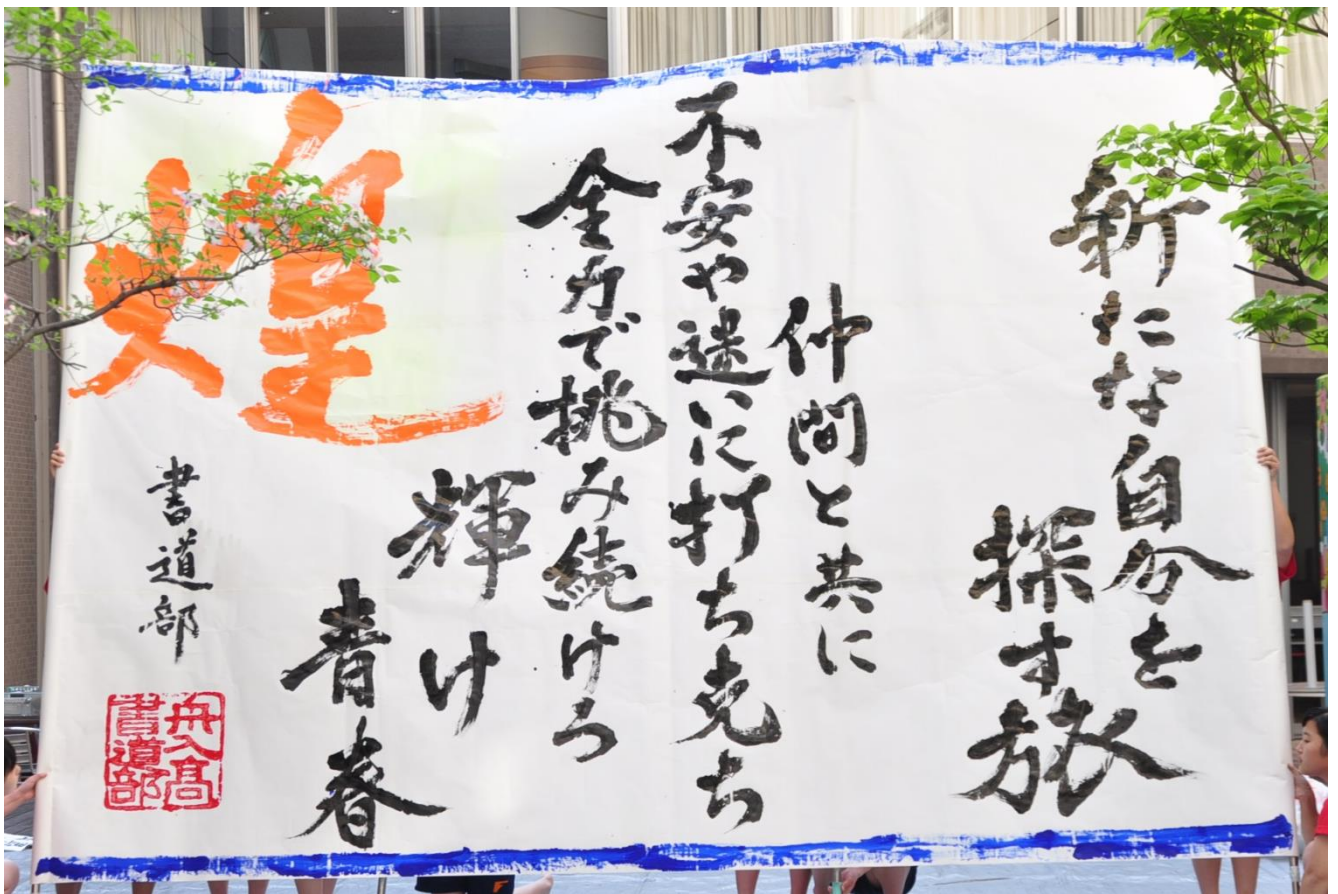 新たな自分を
探す旅
仲間と共に
不安や迷いに打ち克ち
全力で挑み続けろ
輝け
青春
煌
書道部
舟入高
書道部